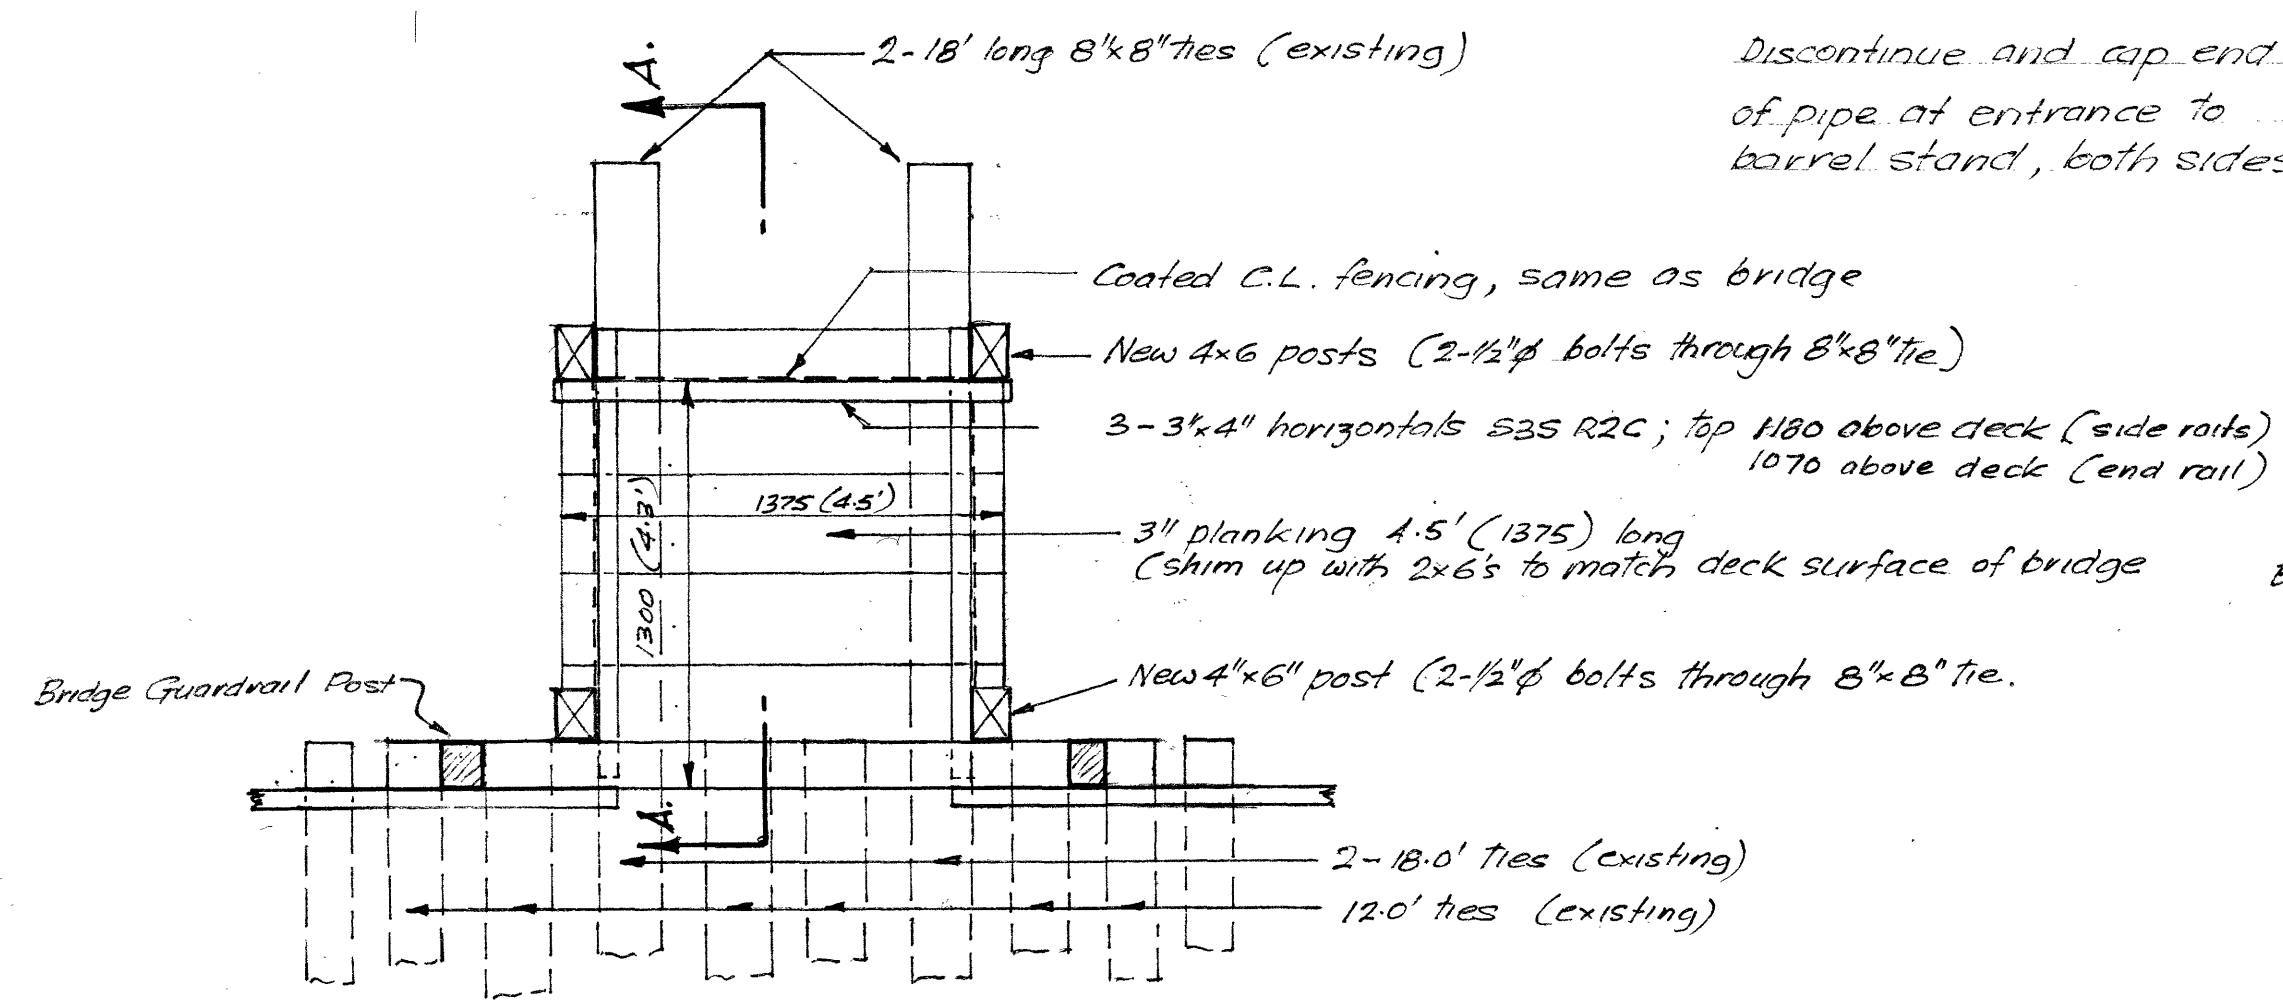 A.
2-18' long 8"x8" ties (existing)
Discontinue and cap end
of pipe at entrance to
barrel stand, both sides
Coated C.L. fencing, same as bridge
New 4x6 posts (2-½"ø bolts through 8"x8" tie)
3-3"x4" horizontals S3S R2C; top 1180 above deck (side rails)
1070 above deck (end rail)
1375 (4.5')
1300 (4.3')
3" planking 4.5' (1375) long
(shim up with 2x6's to match deck surface of bridge
New 4"x6" post (2-½"ø bolts through 8"x8" tie.
Bridge Guardrail Post
A.
2-18.0' ties (existing)
12.0' ties (existing)